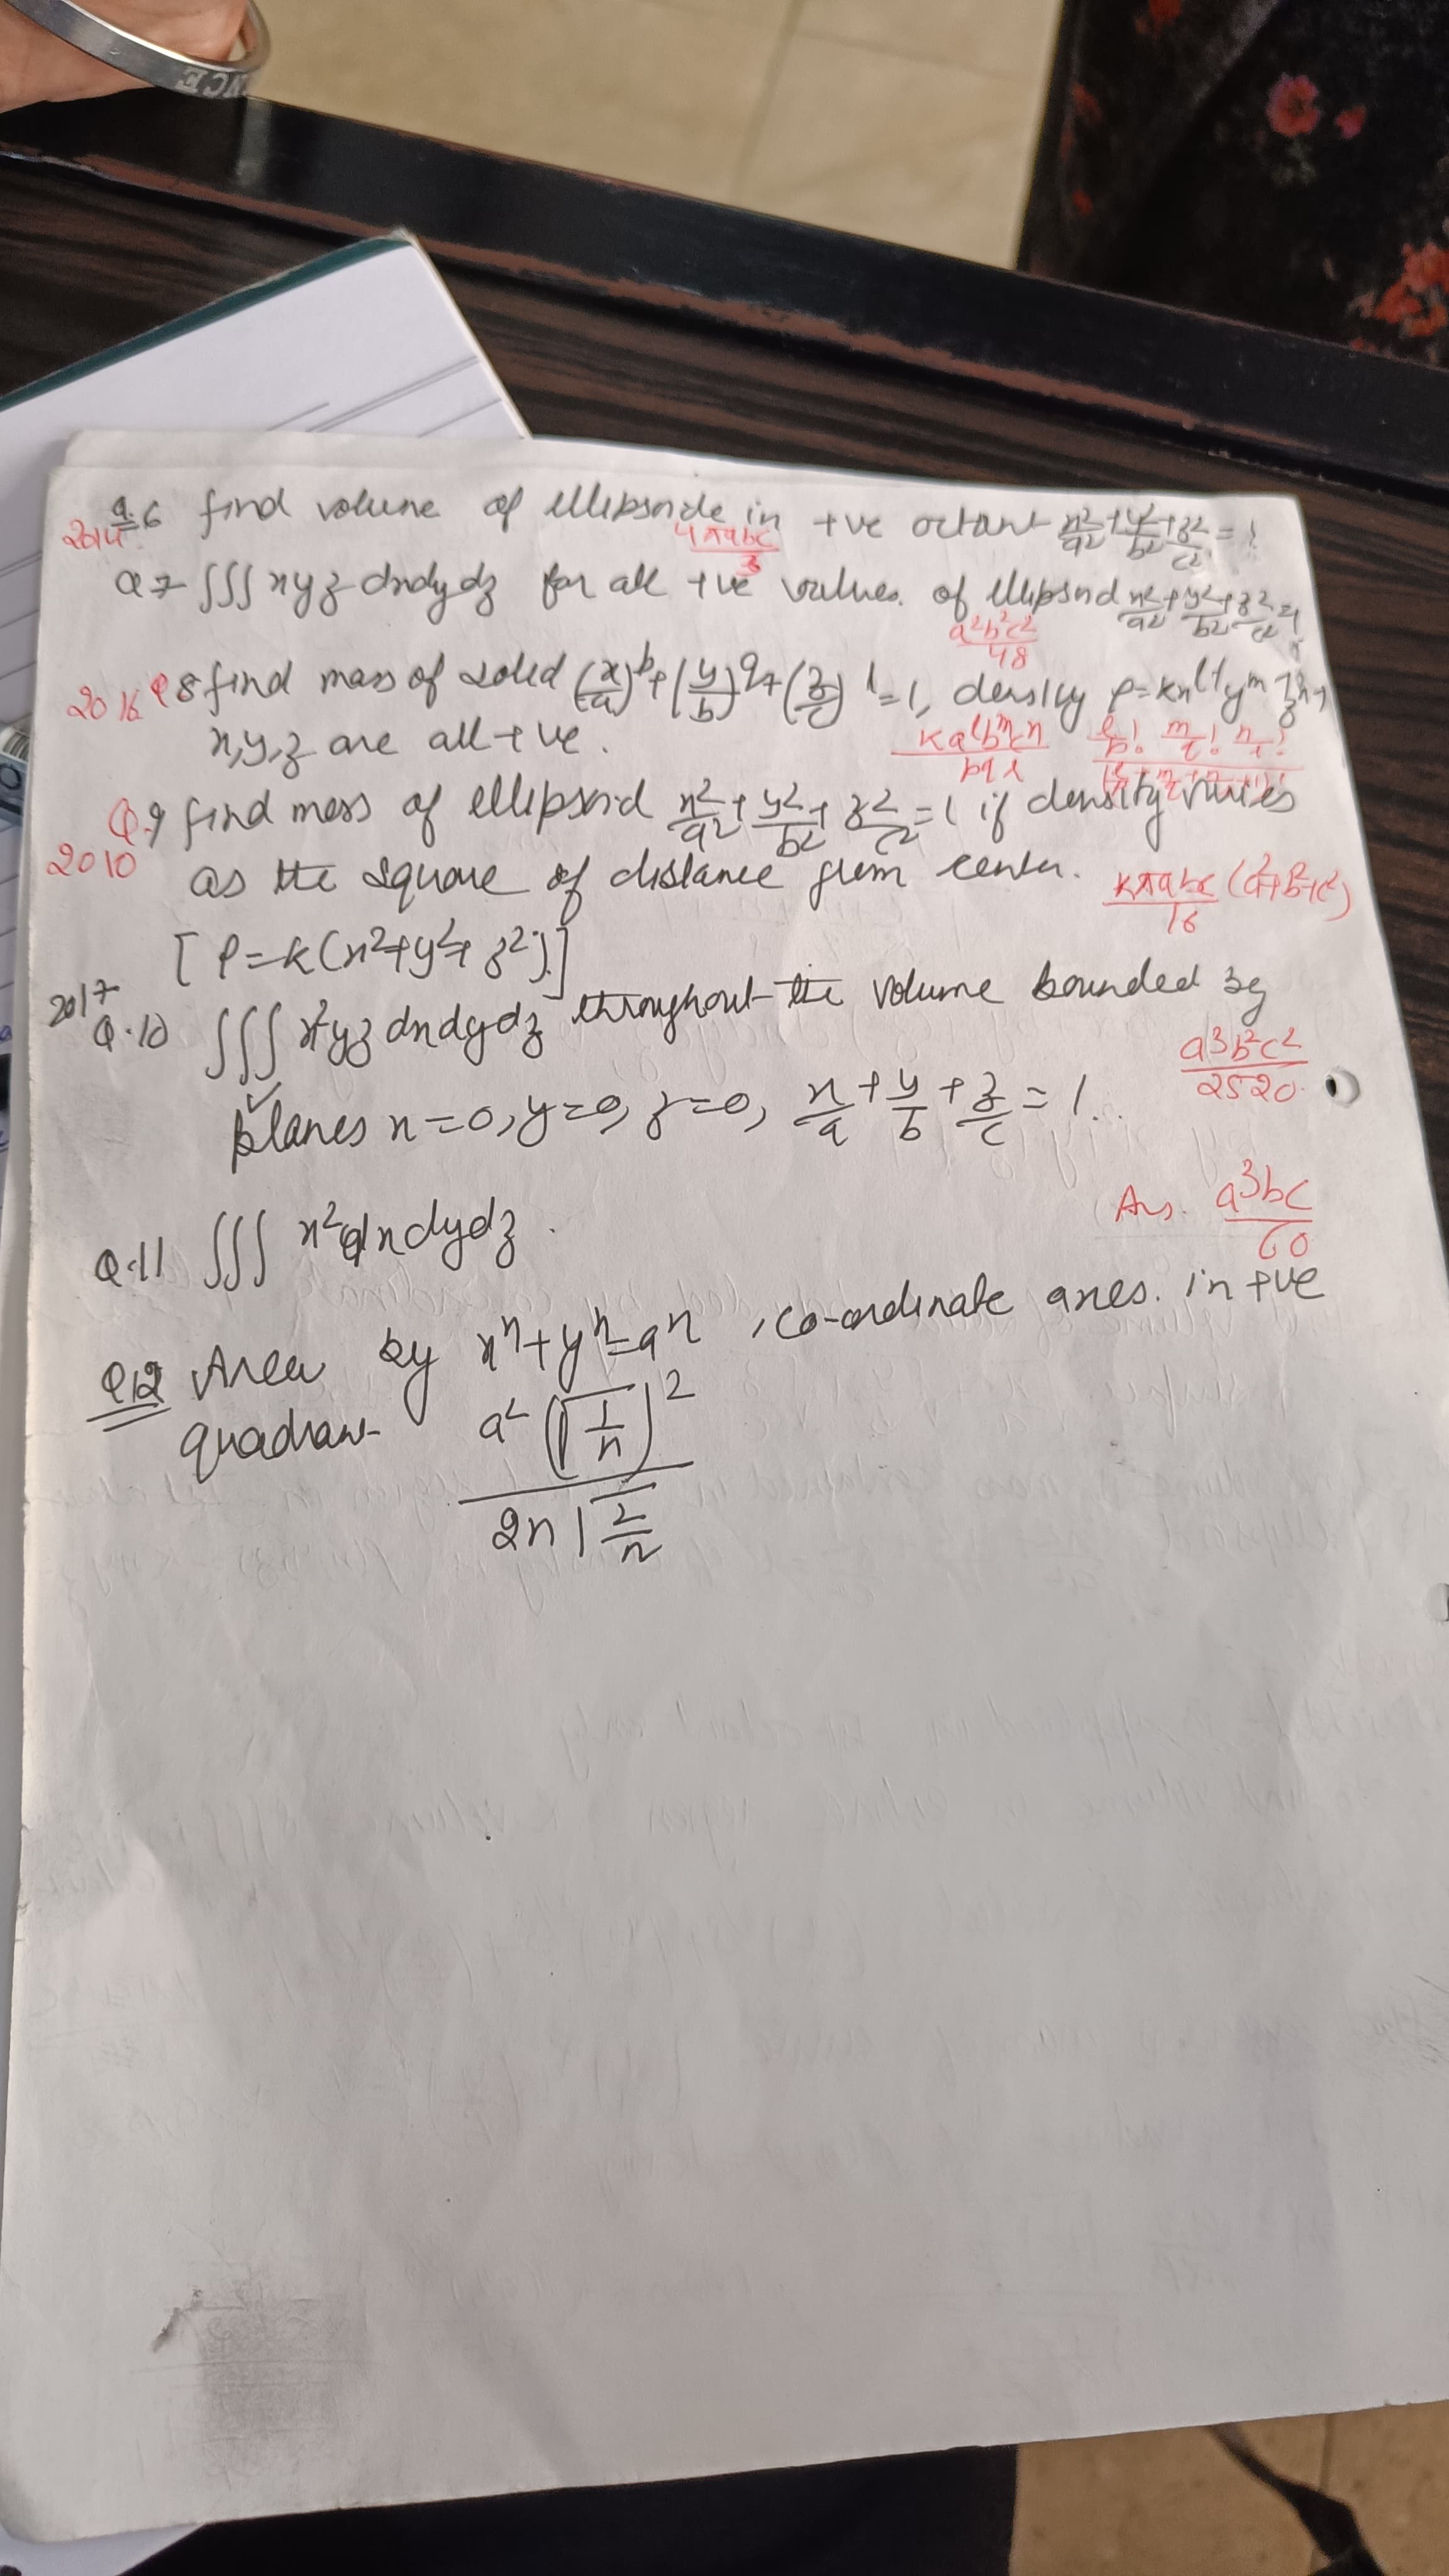 NCE
2014 Q.6 find volume of ellipsoide in +ve octant x²/a² + y²/b² + z²/c² = 1
4πabc/3
Q7 ∫∫∫ xyz dxdydz for all +ve values. of ellipsoid x²/a² + y²/b² + z²/c² = 1
a²b²c²/48
2016 Q8 find mass of solid (x/a)^p + (y/b)^q + (z/c)^r = 1, density ρ = kx^l-1 y^m-1 z^n-1
x,y,z are all +ve.
ka^l b^m c^n/pqr
Q.9 find mass of ellipsoid x²/a² + y²/b² + z²/c² = 1 if density varies
2010 as the square of distance from center. kπabc/16 (a²+b²+c²)
[ρ = k(x²+y²+z²).]
2017
Q.10 ∫∫∫ x²yz dxdydz throughout the volume bounded by
planes x=0, y=0, z=0, x/a + y/b + z/c = 1.
a³b²c²/2520
Q.11 ∫∫∫ x² dxdydz.
Ans. a³bc/60
Q12 Area by xⁿ+yⁿ=aⁿ, co-ordinate axes. in +ve
quadran a²(Γ1/n)²/2nΓ2/n